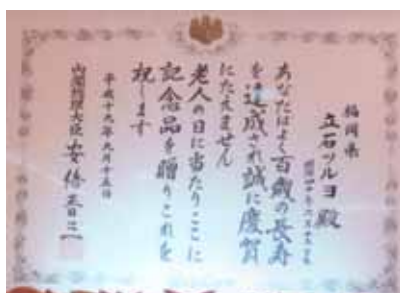 福岡県
立石ツルヨ殿
あなたはよく百歳の長寿
を達成され誠に慶賀
にたえません
老人の日に当たりここに
記念品を贈りこれを
祝します
平成十九年九月十五日
内閣総理大臣 安倍晋三